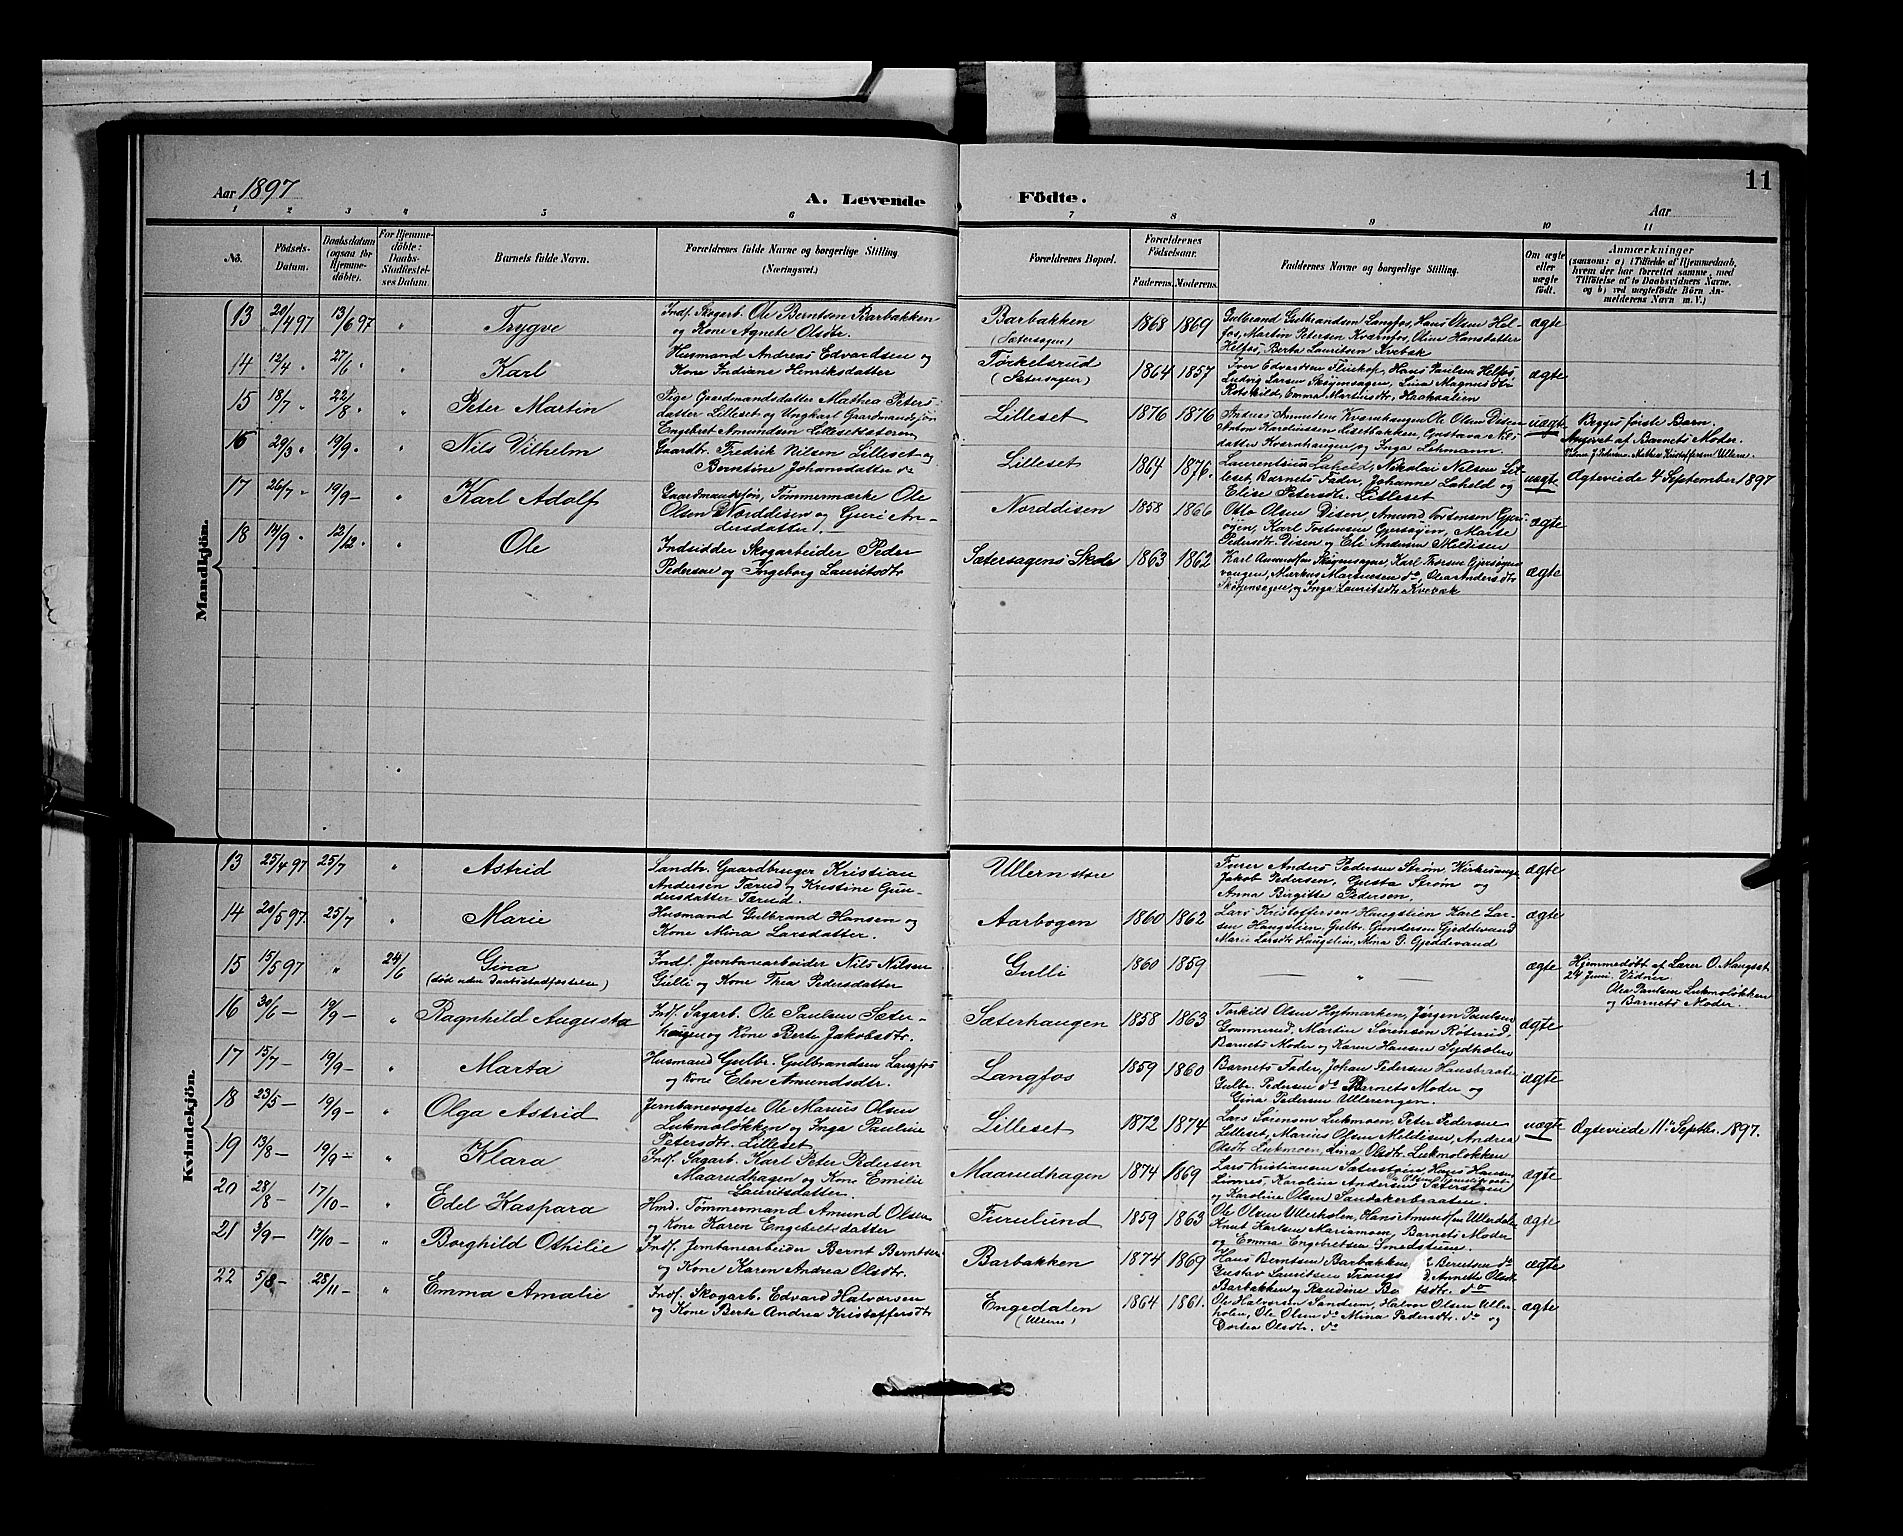 11
Aar 1897
A. Levende Födte.
Aar
1 2 3 4 5 6 7 8 9 10 11
No.
Födsels-Datum.
Daabsdatum (ogsaa for Hjemmedöbte).
For Hjemmedöbte: Daabs-Stadfæstelses Datum.
Barnets fulde Navn.
Forældrenes fulde Navne og borgerlige Stilling (Næringsvei.)
Forældrenes Bopæl.
Forældrenes Födselsaar.
Faderens. Moderens.
Faddernes Navne og borgerlige Stilling.
Om ægte eller uægte födt.
Anmærkninger
(saasom: a) i Tilfælde af Hjemmedaab, hvem der har forrettet samme, med Tilföielse af to Daabsvidners Navne, og b) ved uægtefödte Börn Anmelderens Navn m. V.)
Mandkjön.
13 20/4 97 13/6 97 " Trygve
Inds. Skogarb. Ole Berntsen Barbakken
og Kone Agnete Olsdtr.
Barbakken
(Sætersagen)
1868 1869
Gulbrand Gulbrandsen Langfos, Hans Olsen Hel-
fos, Martin Petersen Kværnfos, Oline Hansdatter
Helfos, Berta Lauritsen Kvebæk
ægte
14 12/4 " 27/6 " " Karl
Husmand Andreas Edvardsen og
Kone Indiane Henriksdatter
Torkelsrud
(Sætersagen)
1864 1857
Iver Edvardsen, Hans Paulsen Helfos
Ludvig Larsen Skøiensagen, Lina Magnusdtr
Rotskild, Emma Martinsdtr. Haaksalien
ægte
15 18/7 " 22/8 " " Peter Martin
Pige Gaardmandsdatter Mathea Peters-
datter Lilleset og Ungkarl Gaardmandssøn
Engebret Amundsen Lillesætstøen
Lilleset
1876 1876
Anders Amundsen Kværnhaugen Ole Olsen Disen
Anton Karelinssen Lisetbakken, Gustava Nils-
datter Kværnhaugen og Inga Lohmann.
uægte
Begges første Barn.
Angivet af Barnets Moder.
16 29/3 " 19/9 " " Nils Vilhelm
Gaardbr. Fredrik Nilsen Lilleset og
Berntine Johansdatter do
Lilleset
1864 1876.
Laurentsius Laheld, Nikolai Nilsen Lil-
leset, Barnets Fader, Johanne Laheld og
Elise Petersdtr. Lilleset
uægte
Ægteviede 4 September 1897
17 26/7 " 19/9 - " Karl Adolf
Gaardmandssøn, Tømmermærke Ole
Olsen Norddisen og Guri An-
dersdatter
Norddisen
1858 1866
Otto Olsen Disen, Amund Torstensen Gjers-
øien, Karl Tostensen Gjersøien, Marte
Pedersdtr Disen og Eli Andersen Mildisen
ægte
18 14/9 " 12/12 " " Ole
Indsidder Skogarbeider Peder
Pedersen og Ingeborg Lauritsdtr
Sætersagens Skole
1863 1862
Karl Amundsen Skøiensagen, Karl Thorsen Gjersøien-
vengen, Markus Martinsen do, Olea Andersdtr
Skøiensagen, og Inga Lauritsdtr Kvebæk
ægte
Kvindekjön.
13 25/4 97 25/7 " Astrid
Landbr. Gaardbruger Kristian
Andersen Tærud og Kristine Gun-
dersdatter Tærud.
Ullern store
Furer Anders Pedersen Strøm, Kirkesanger
Jakob Pedersen, Gusta Strøm og
Anna Birgitte Pedersen,
ægte
14 20/5 97. 25/7 " Marie
Husmand Gulbrand Hansen og
Kone Mina Larsdatter.
Aarbogen
1860 1862
Lars Kristoffersen Haugstien Karl Lar-
sen Haugstien, Gulbr. Gundersen Gjeddevand
Marie Larsdtr Haugstien, Mina G. Gjeddevand
ægte
15 15/5 97 " 24/6 Gina
(død uden Daabsstadfæstelse)
Inds. Jernbanearbeider Nils Nilsen
Gulli og Kone Thea Pedersdatter
Gulli
1860 1859
— " —
ægte
Hjemmedøbt af Lærer O. Haugset
24 Juni. Vidner
Olea Paulsen Lukmoløkken
og Barnets Moder.
16 30/6 - 19/9 - " Ragnhild Augusta
Inds. Sagarb. Ole Paulsen Sæter-
haugen og Kone Berte Jakobsdtr.
Sæterhaugen
1858 1863
Torkild Olsen Høitmarken, Jørgen Paulsen
Gommerud, Martin Sørensen Røterud
Barnets Moder og Karen Hansen Sydholen
ægte
17 15/7 - 19/9 - " Marta
Husmand Gulbr. Gulbrandsen Langfos
og Kone Elen Amundsdtr.
Langfos
1859 1860
Barnets Fader, Johan Pedersen Hansbraaten
Gulbr. Pedersen do Barnets Moder og
Gina Pedersen Ullerengen.
ægte
18 23/5 - 19/9 - " Olga Astrid
Jernbanevogter Ole Marius Olsen
Lukmoløkken og Inga Pauline
Petersdtr. Lilleset
Lilleset
1872 1874
Lars Sørensen Lukmoen, Peter Pedersen
Lilleset, Marius Olsen Mildisen, Andrea
Olsdtr Lukmoen, Lina Olsdtr. Lukmoløkken
uægte
Ægteviede 11te Septbr. 1897.
19 13/8 - 19/9 - " Klara
Inds. Sagarb. Karl Peter Pedersen
Maarudhagen og Kone Emilie
Lauritsdatter.
Maarudhagen
1874 1869
Lars Kristiansen Sæterstøen Hans Hansen
Linnes, Karoline Andersen Sæterstøen
og Karoline Olsen Sandakerbraaten
ægte
20 28/8 - 17/10 - " Edel Kaspara
Hmd. Tømmermand Amund Olsen
og Kone Karen Engebretsdatter
Furulund
1859 1863
Ole Olsen Ullerholen, Hans Amundsen Ullerdalen
Knut Karlsen Mariamoen, Barnets Moder
og Emma Engebretsen Smedstuen.
ægte
21 3/9 - 17/10 - " Borghild Othilie
Inds. Jernbanearbeider Bernt Berntsen
og Kone Karen Andrea Olsdtr.
Barbakken
1874 1869
Hans Berntsen Barbakken, Berntsen do
Gustav Lauritsen Annette Olsdtr
Barbakken og Randine do
ægte
22 5/8 - 28/11 - " Emma Amalie
Inds. Skogarb. Edvard Halvorsen
og Kone Berte Andrea Kristoffersdtr
Engedalen
(Ullern)
1864 1861.
Ole Halvorsen Sandum, Halvor Olsen Uller-
holen, Ole Olsen do Mina Pedersdtr. do og
Dortea Olsdtr. do
ægte